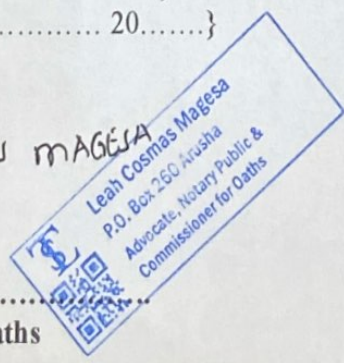 .................. 20.......}
MAGESA
Leah Cosmas Magesa
P.O. Box 260 Arusha
Advocate, Notary Public &
Commissioner for Oaths
TSL